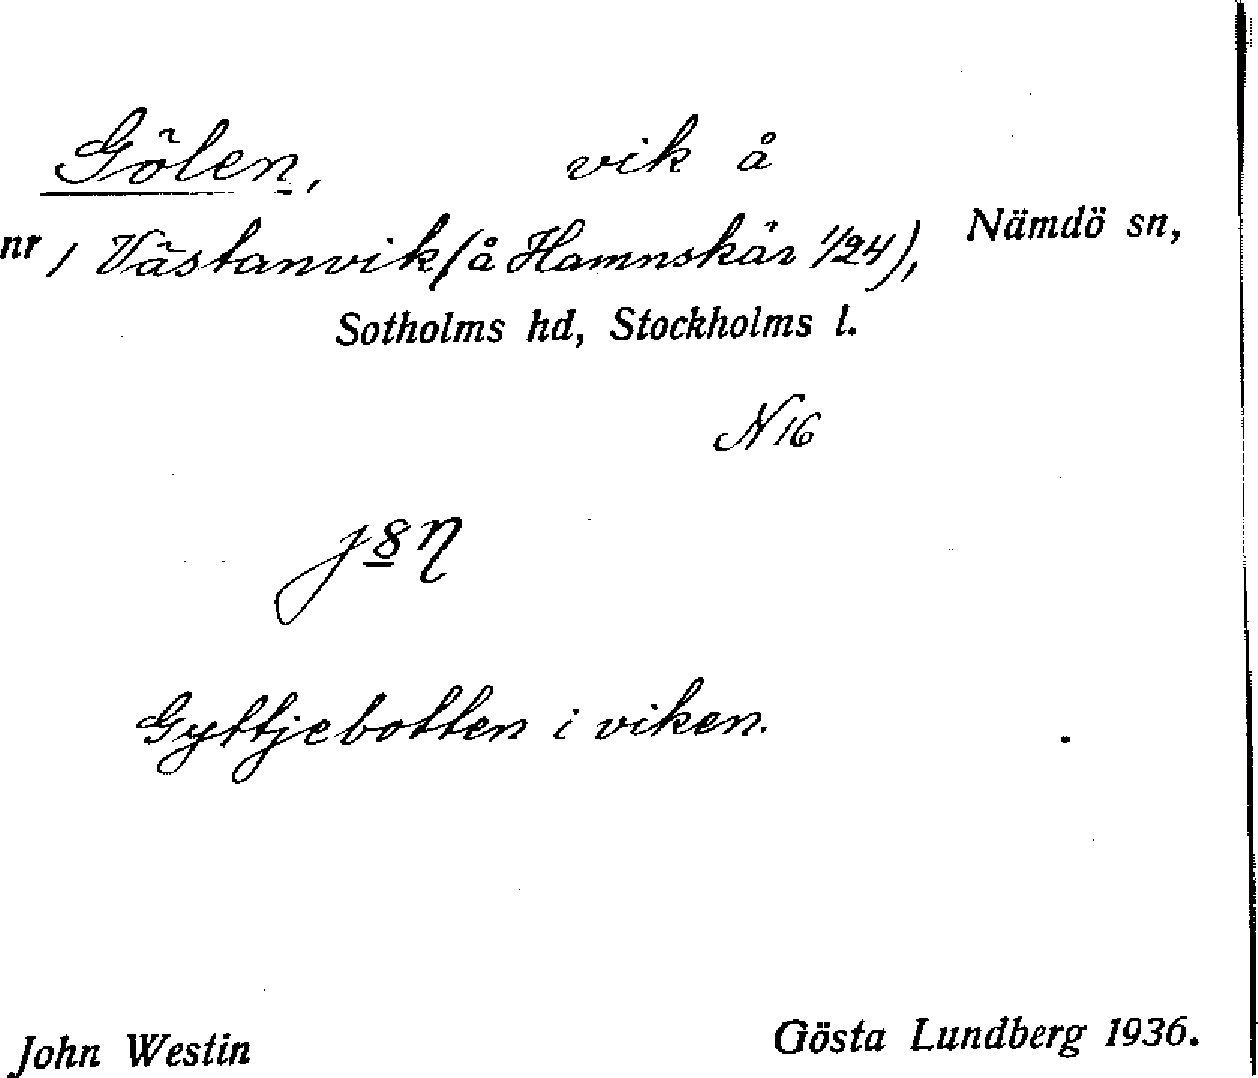 Gölen, vik å
nr 1 Västanvik (å Hamnskär 1/24), Nämdö sn,
Sotholms hd, Stockholms l.
N 16
Gyttjebotten i viken.
John Westin Gösta Lundberg 1936.